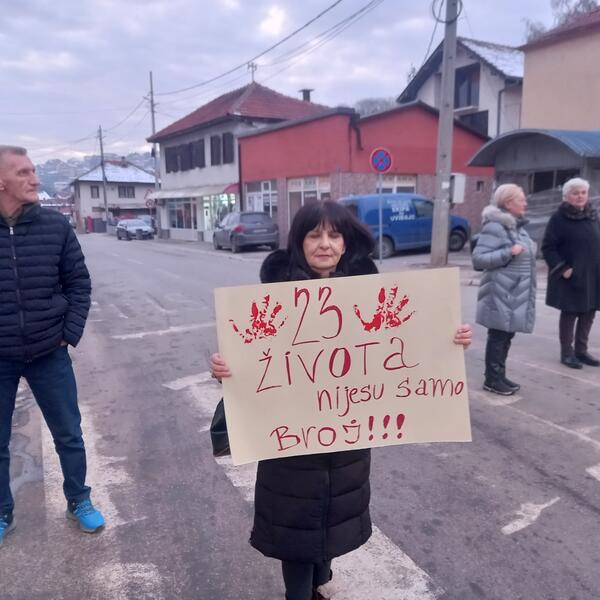 23
života
nijesu samo
Broj!!!